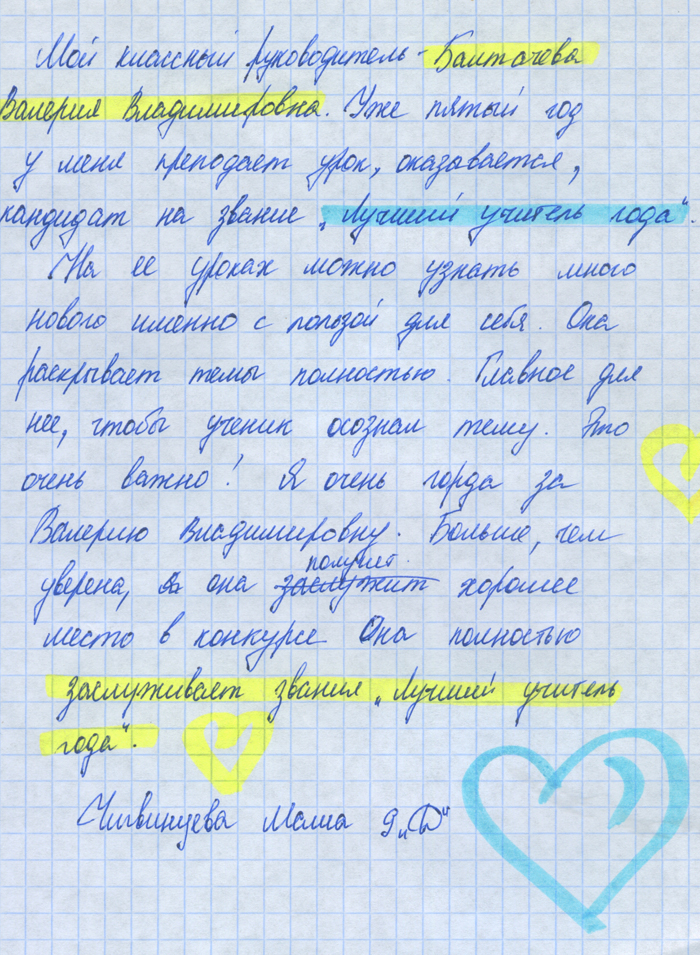 Мой классный руководитель - Балтачева
Валерия Владимировна. Уже пятый год
у меня преподает урок, оказывается,
кандидат на звание „Лучший учитель года“.
На ее уроках можно узнать много
нового именно с пользой для себя. Она
раскрывает темы полностью. Главное для
нее, чтобы ученик осознал тему. Это
очень важно! Я очень горда за
Валерию Владимировну. Больше, чем
получит
уверена, она заслужит хорошее
место в конкурсе Она полностью
заслуживает звания „Лучший учитель
года“.
Чигвинцева Маша 9„Д“